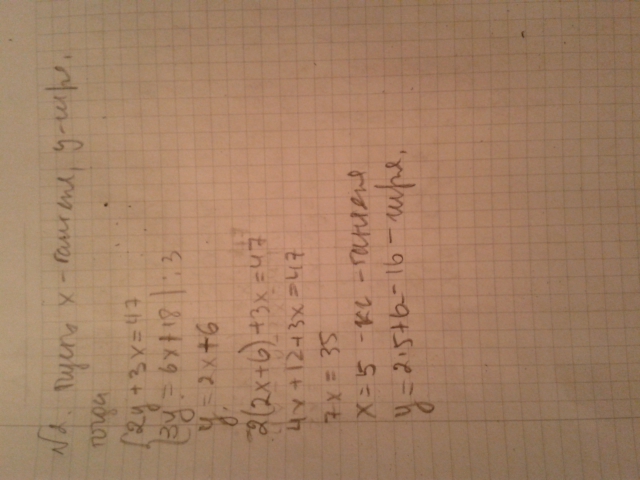 №2. Пусть x - гантеля, y - гиря,
тогда
{2y + 3x = 47
{3y = 6x + 18 | : 3
y = 2x + 6
2(2x + 6) + 3x = 47
4x + 12 + 3x = 47
7x = 35
x = 5 - кг - гантеля
y = 2·5 + 6 - 16 - гиря.